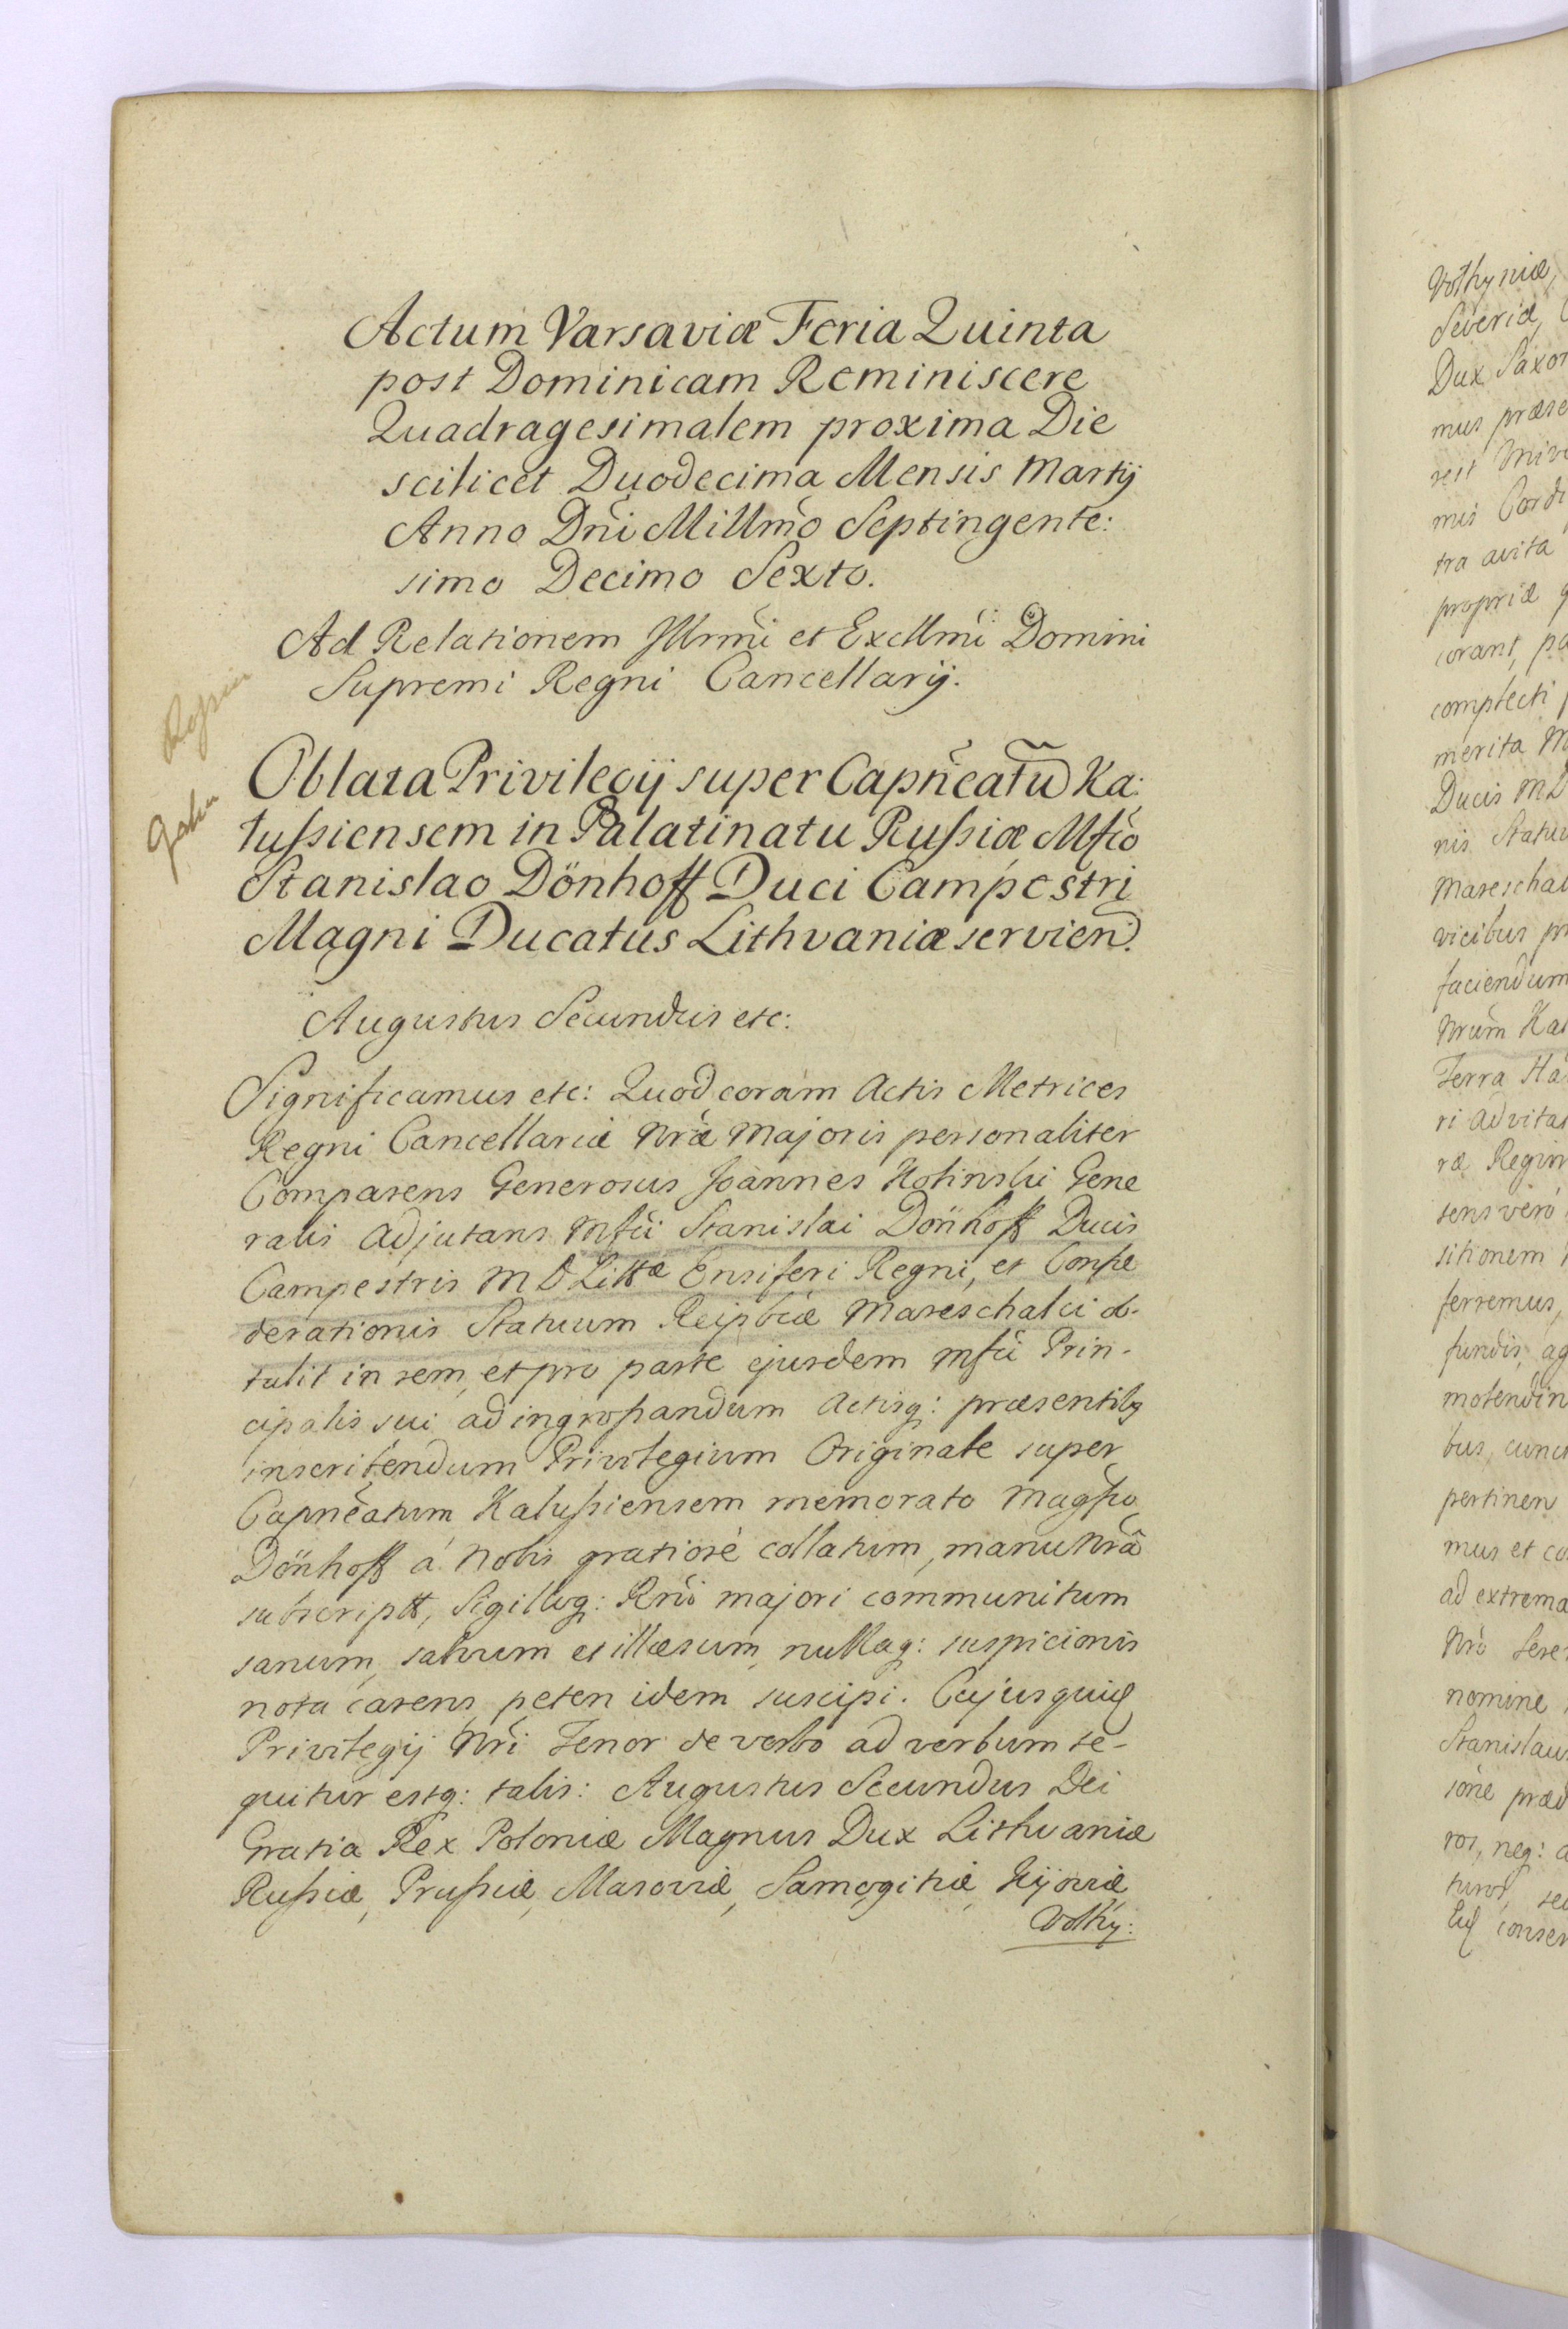 Actum Varsaviæ Feria Quinta
post Dominicam Reminiscere
Quadragesimalem proxima Die
scilicet Duodecima Mensis Martij
Anno Dñi Millmo Septingente:
simo Decimo Sexto.
Ad Relationem Jllrmi et Excllmi Domini
Supremi Regni Cancellarij.
Oblata Privilegij super Capñeatũ Ka:
lußiensem in Palatinatu Rußiæ Mfco
Stanislao Dönhoff Duci Campestri
Magni Ducatus Lithvaniæ servien.
Augustus Secundus etc:
Significamus etc: Quod coram Actis Metrices
Regni Cancellariæ Nræ Majoris personaliter
Comparens Generosus Joannes Holinski Gene
ralis Adjutans Mfci Stanislai Dönhoff Ducis
Campestris M D Littæ Ensiferi Regni, et Confæ
derationis Statuum Reipbcæ Mareschalci ob-
tulit in rem, et pro parte ejusdem Mfci Prin-
cipalis sui ad ingroßandum Actisq: præsentibq
inscribendum Privilegium Originale super
Capñeatum Kalußiensem memorato Magfco
Dönhoff á Nobis gratiosè collatum, manu Nrâ
subscriptt, Sigilloq: Rni majori communitum
sanum, salvum et illæsum, nullaq: suspicionis
nota carens, peten idem suscipi. Cujusquid
Privilegij Nri Tenor de verbo ad verbum se-
quitur estq: talis: Augustus Secundus Dei
Gratia Rex Poloniæ Magnus Dux Lithvaniæ
Rußiæ, Prußiæ, Masoviæ, Samogitiæ, Kijoviæ,
Volhy:
Volhyniæ,
Severiæ,
Dux Saxon
mus præse
mis Cordi
tra avita
propriæ
corant, pa
complecti
merita M
Ducis MD
nis Statuu
Mareschal
vicibus pr
faciendum
Nrum Kal
Terra Ha
ri ad vita
ræ Regin
sens vero
sitionem
ferremus,
fundis, ag
molendin
bus, cunct
pertinen
mus et co
ad extrema
Nro Sere
nomine
Stanislau
ione præd
ros, neq: a
turos, se
conser